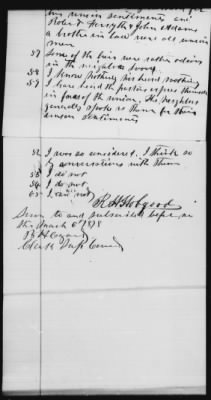 his union sentiments and
Robert Forsythe & John Adams
a brother in law were all union
men
57 Some of the heirs were rather odious
in the neighborhood
58 I know nothing his hand nothing
59 I have heard the parties express themselves
in favor of the union. His neighbors
generally spoke of them for their
union sentiments
52 I was so considered. I think so
by conversations with them
53 I do not
54 I do not
65 I can not
R H Hobgood
Sworn to and subscribed before me
this March 6th 1878
Clerk Supr Court